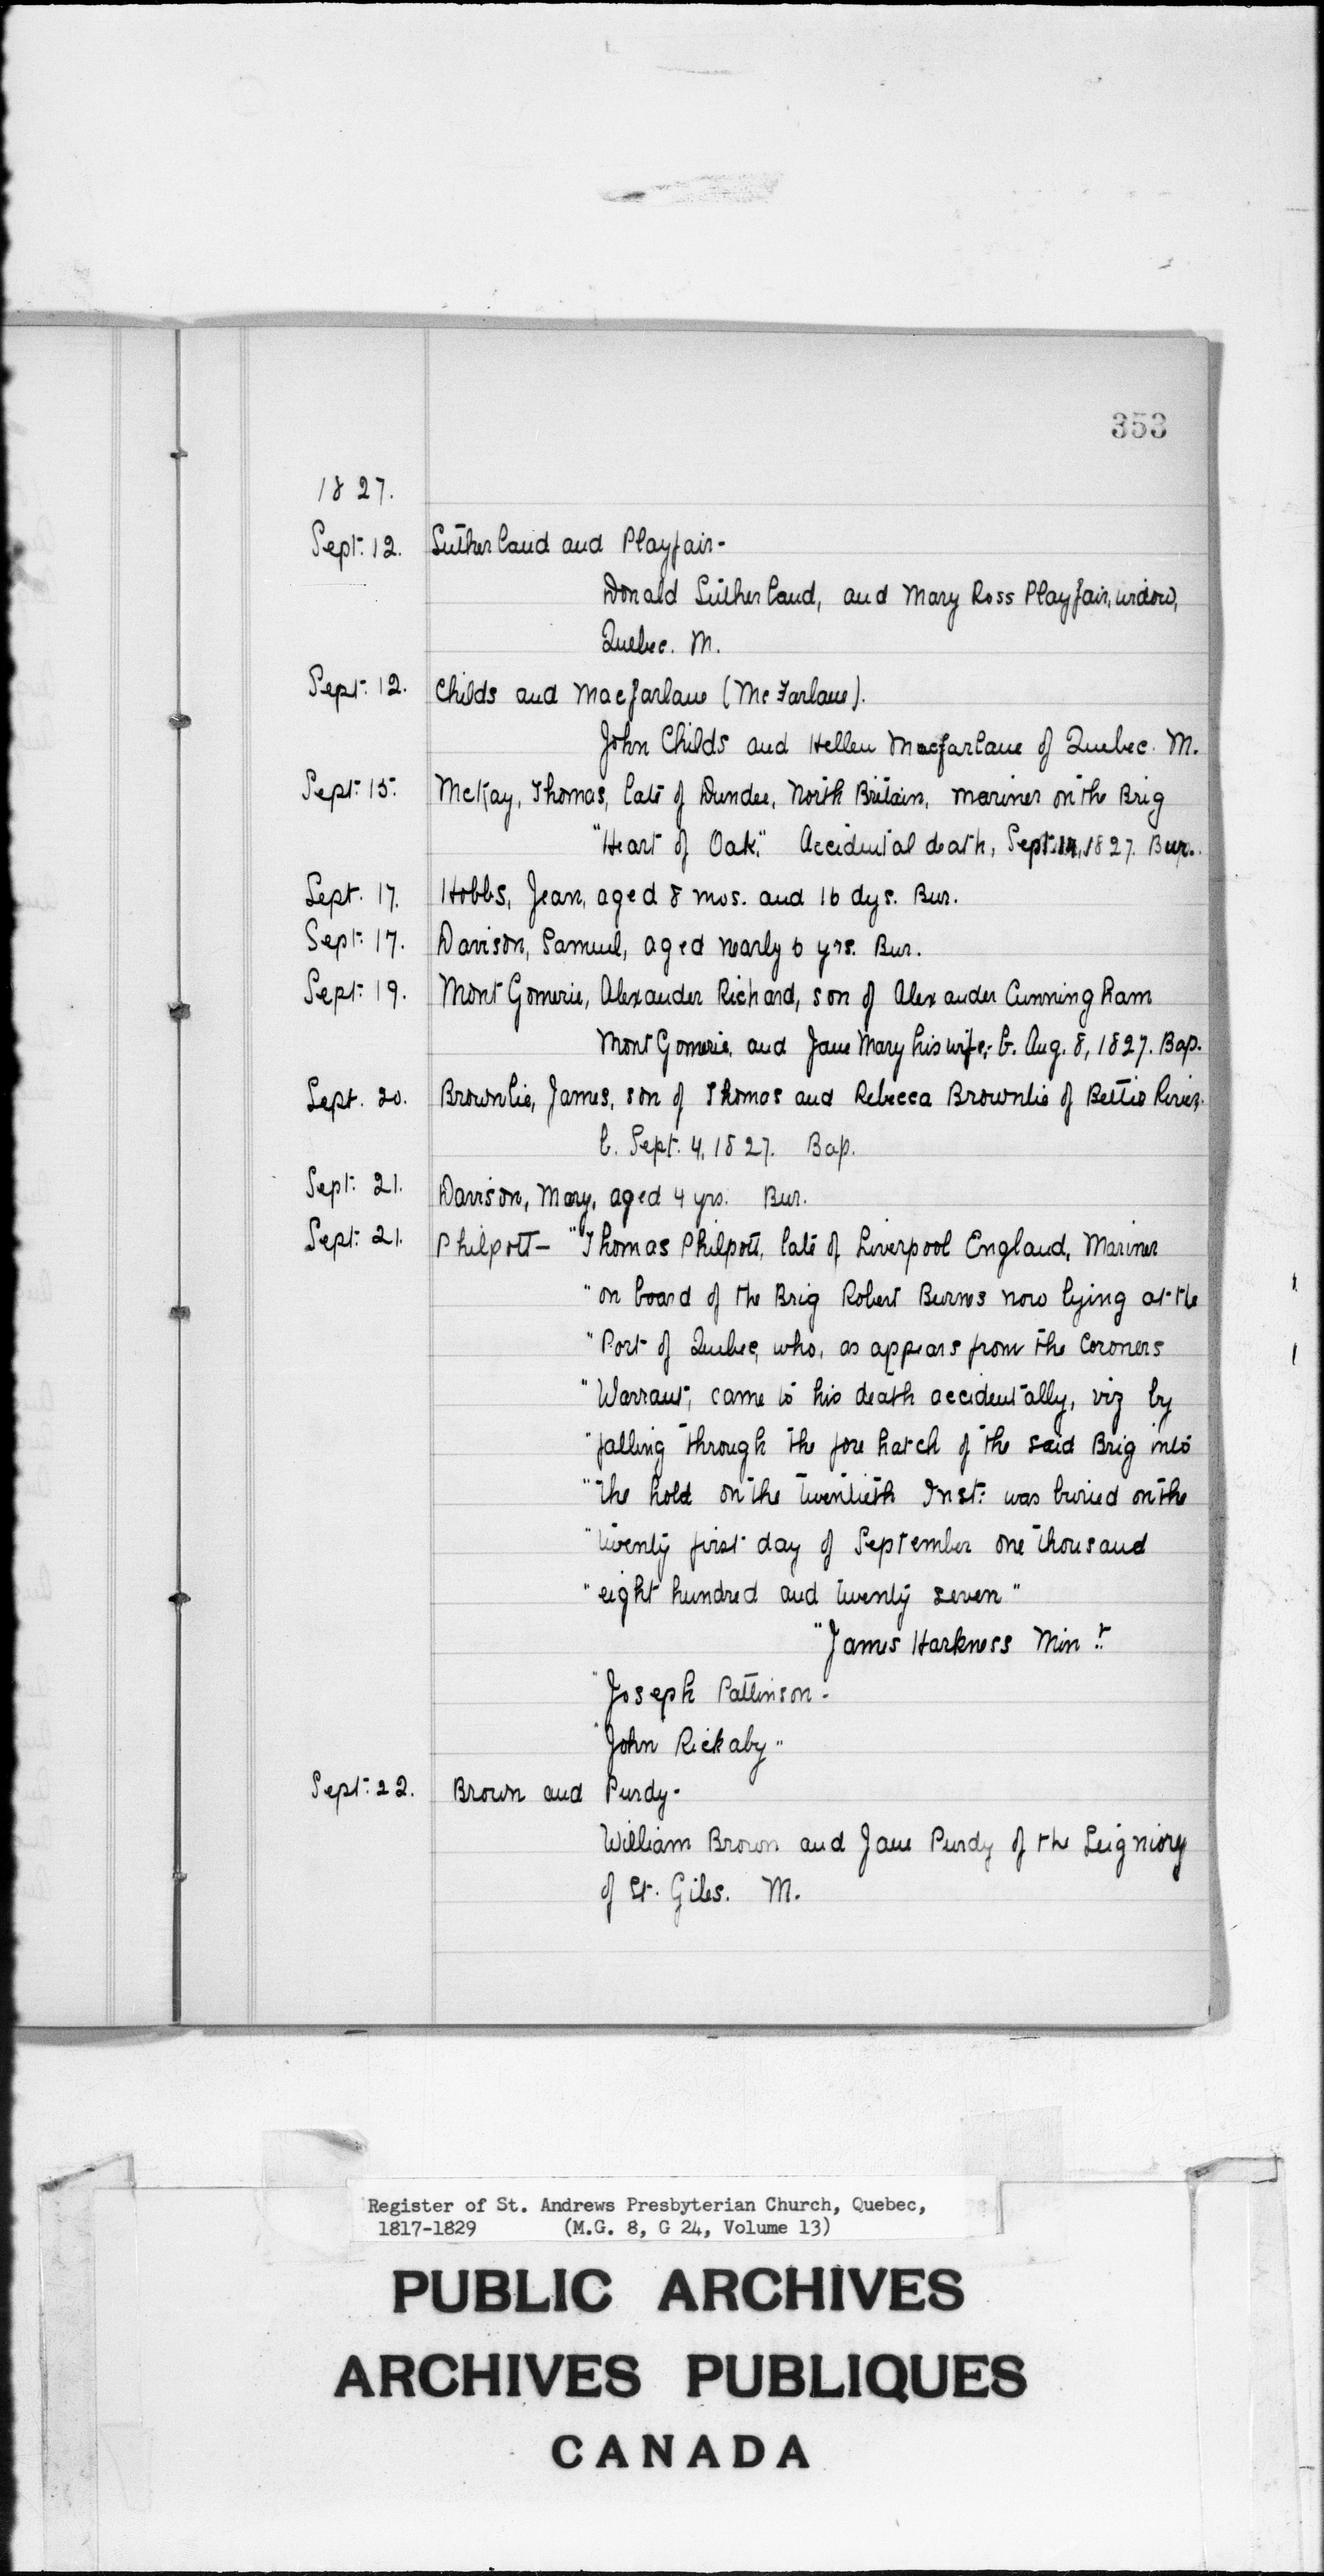 353
1827.
Sept. 12. Sutherland and Playfair-
Donald Sutherland, and Mary Ross Playfair, widow,
Quebec. M.
Sept. 12. Childs and Macfarlane (McFarlane).
John Childs and Hellen Macfarlane of Quebec. M.
Sept. 15. McKay, Thomas, late of Dundee, North Britain, mariner on the Brig
"Heart of Oak." Accidental death, Sept. 14, 1827. Bur.
Sept. 17. Hobbs, Jean, aged 8 mos. and 16 dys. Bur.
Sept. 17. Davison, Samuel, aged nearly 6 yrs. Bur.
Sept. 19. MontGomerie, Alexander Richard, son of Alexander Cunningham
MontGomerie, and Jane Mary his wife,- b. Aug. 8, 1827. Bap.
Sept. 20. Brownlie, James, son of Thomas and Rebecca Brownlie of Bettis River.
b. Sept. 4, 1827. Bap.
Sept. 21. Davison, Mary, aged 4 yrs. Bur.
Sept. 21. Philpott- "Thomas Philpott, late of Liverpool England, Mariner
"on board of the Brig Robert Burnes now lying at the
"Port of Quebec, who, as appears from the Coroners
"Warrant, came to his death accidentally, viz by
"falling through the fore hatch of the said Brig into
"the hold on the twentieth Inst: was buried on the
"twenty first day of September one thousand
"eight hundred and twenty seven"
"James Harkness Minr.
"Joseph Pattinson-
"John Rickaby"
Sept. 22. Brown and Purdy-
William Brown and Jane Purdy of the Seigniory
of St. Giles. M.
Register of St. Andrews Presbyterian Church, Quebec,
1817-1829 (M.G. 8, G 24, Volume 13)
PUBLIC ARCHIVES
ARCHIVES PUBLIQUES
CANADA